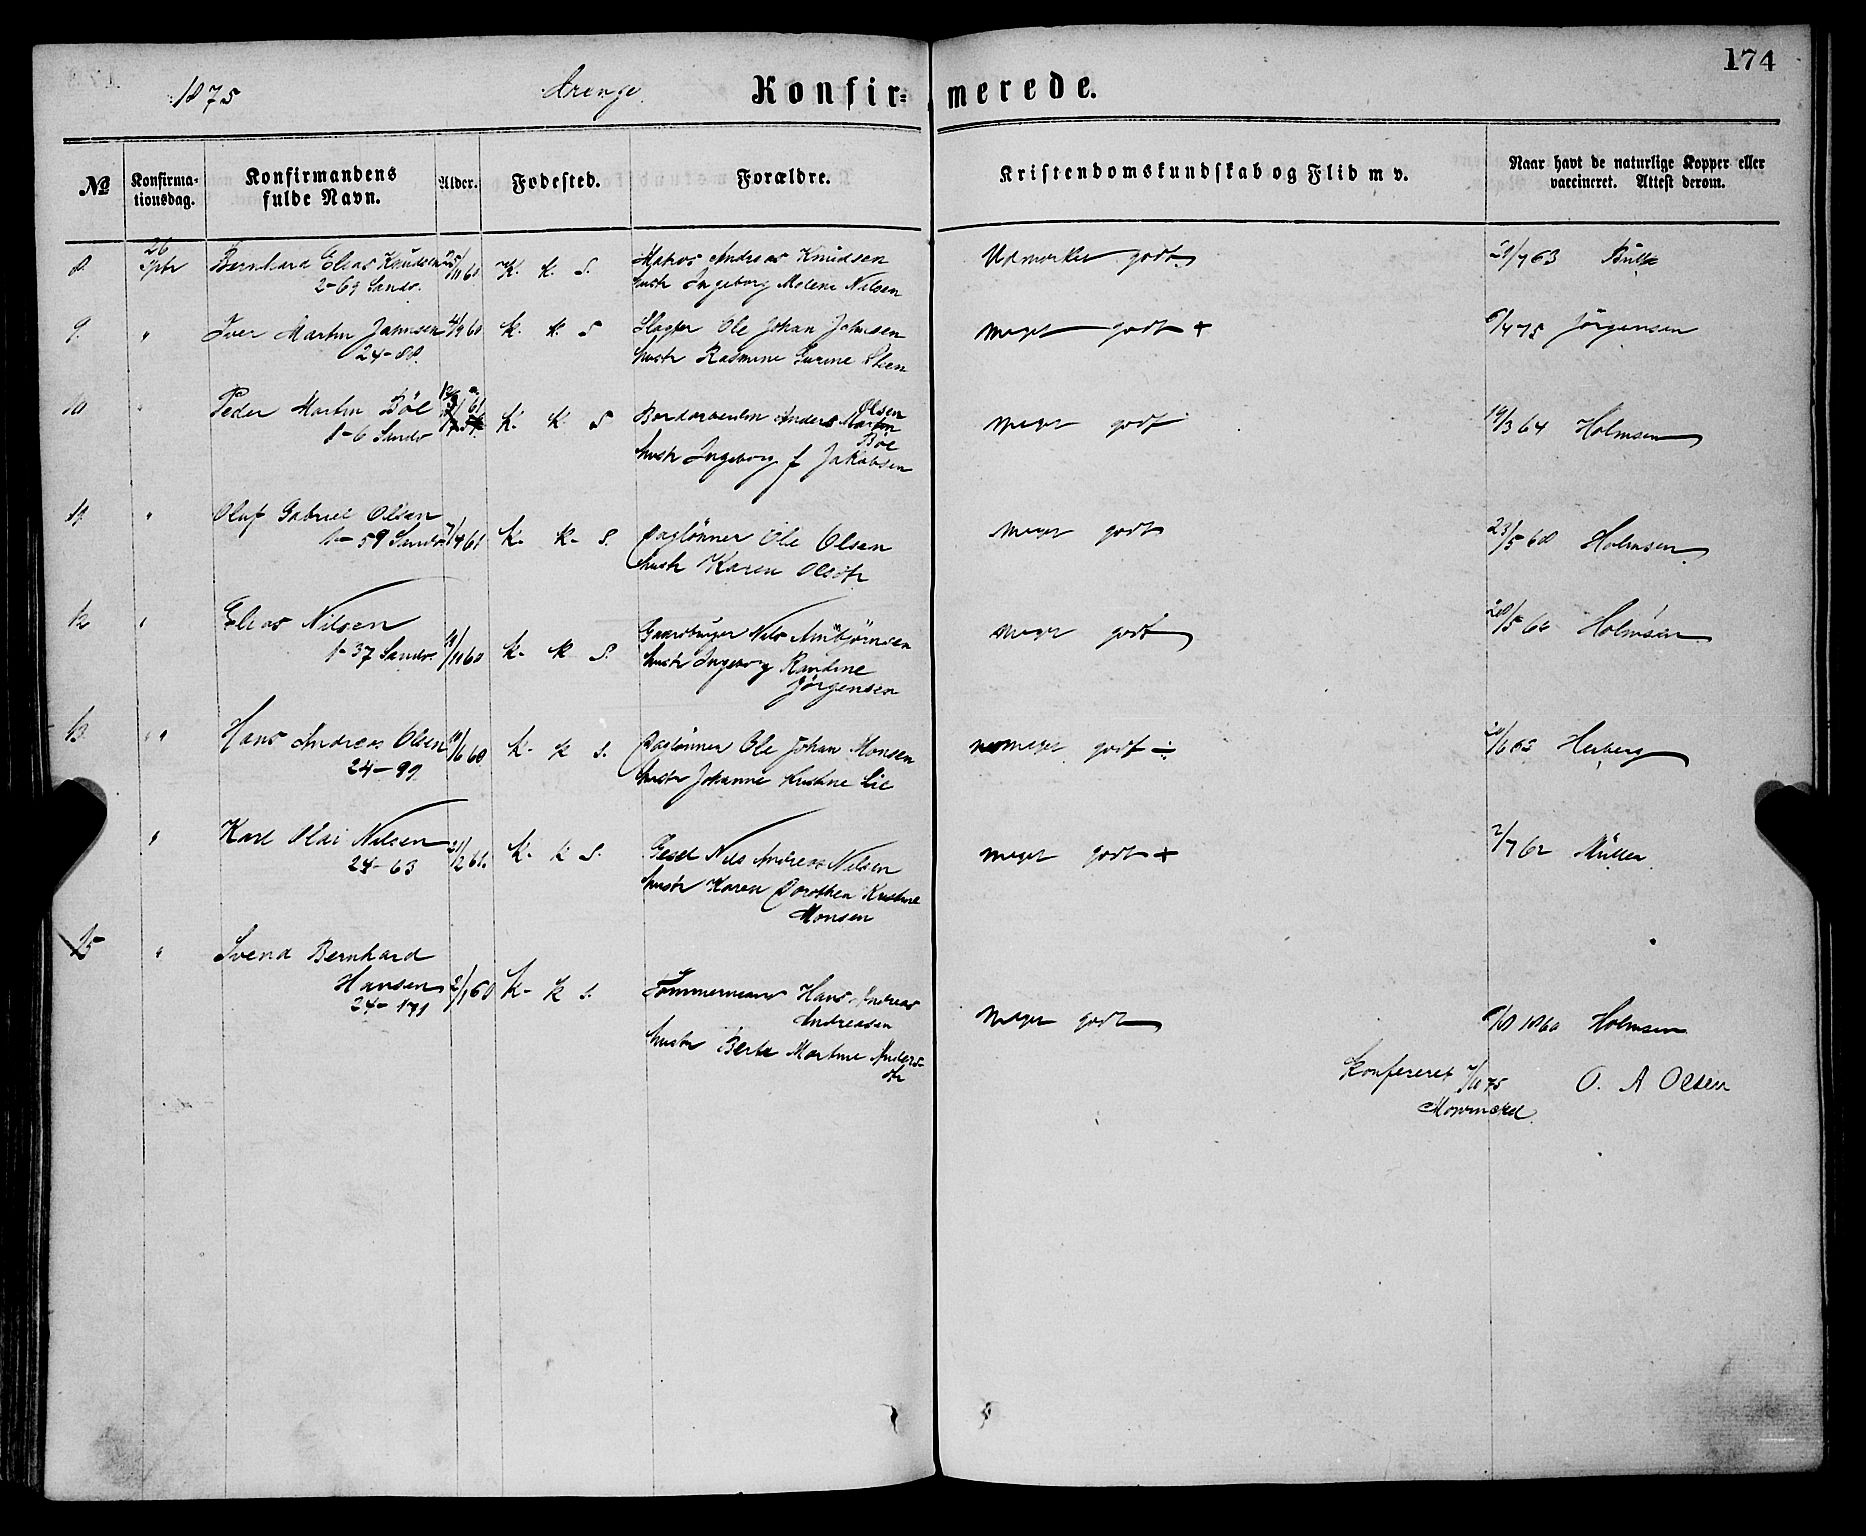 174
1875 Drenge Konfir= merede.
№ Konfirma-tionsdag. Konfirmandens fulde Navn. Alder. Fødested. Forældre. Kristendomskundskab og Flid m v. Naar havt de naturlige Kopper eller vaccineret. Attest derom.
8. 26 Sptr Bernhard Elias Knudsen 25/11 60 K. K. S. Matros Andreas Knudsen Udmærket godt 21/7 63 Bull
2-69 Sandv. hustr Ingeborg Malene Nilsen
9. " Iver Martin Jahnsen 4/9 60 K. K. S Slagter Ole Johan Johnsen meget godt + 6/4 75 Jørgensen
24-88. hustr Rasmine Gurine Steen
10 " Peder Martin Böe 61 K. K. S Bordarbeider Anders Martin Olsen Böe meget godt 19/3 64 Holmsen
1-6 Sandv hustr Ingeborg f Jakobsen
11 " Oluf Gabriel Olsen
1-59 Sandv 7/4 61 K- K- S. Daglönner Ole Olsen meget godt 23/5 68 Holmsen
hustr Karen Olsdtr
12 " Elias Nilsen
1-37 Sandv. 9/11 60 K- K- S. Gaardbruger Nils Arnbjörnsen meget godt 28/5 62 Holmsen
hustr Ingeborg Randine
Jörgensen
13. " " Hans Andreas Olsen 10/6 60 K- K S. Daglönner Ole Johan Monsen meget godt ÷ 21/6 65 Herberg
24-99 hustr Johanne Kristine Lie
" Karl Olai Nilsen 21/2 61. K- K S. Gesel Nils Andreas Nilsen meget godt + 2/7 62 Müller
24-63 hustr Karen Dorothea Kristine
Monsen
15 " Svend Bernhard
Hansen 2/1 60 K- K S. Tömmermand Hans Andreas
24-171 Andreasen meget godt 6/8 1860 Holmsen
hustr Berte Martine Anders-
dtr
Konfereret 7/11 75 O. A Olsen